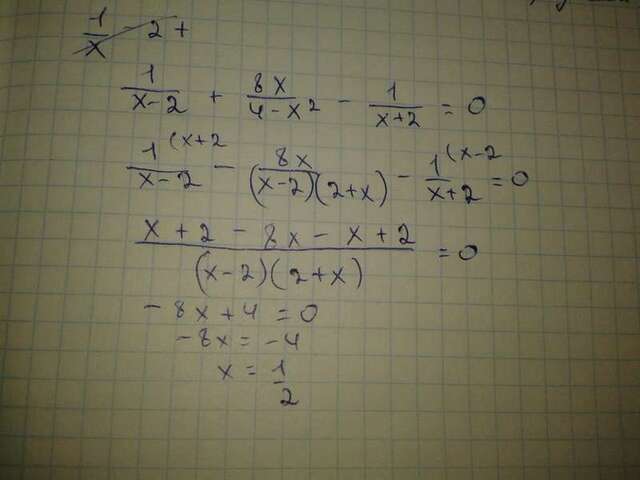 1/x - 2 +
1/(x-2) + 8x/(4-x²) - 1/(x+2) = 0
1(x+2/(x-2) - 8x/((x-2)(2+x)) - 1(x-2/(x+2) = 0
(x+2-8x-x+2)/((x-2)(2+x)) = 0
-8x+4=0
-8x=-4
x=1/2